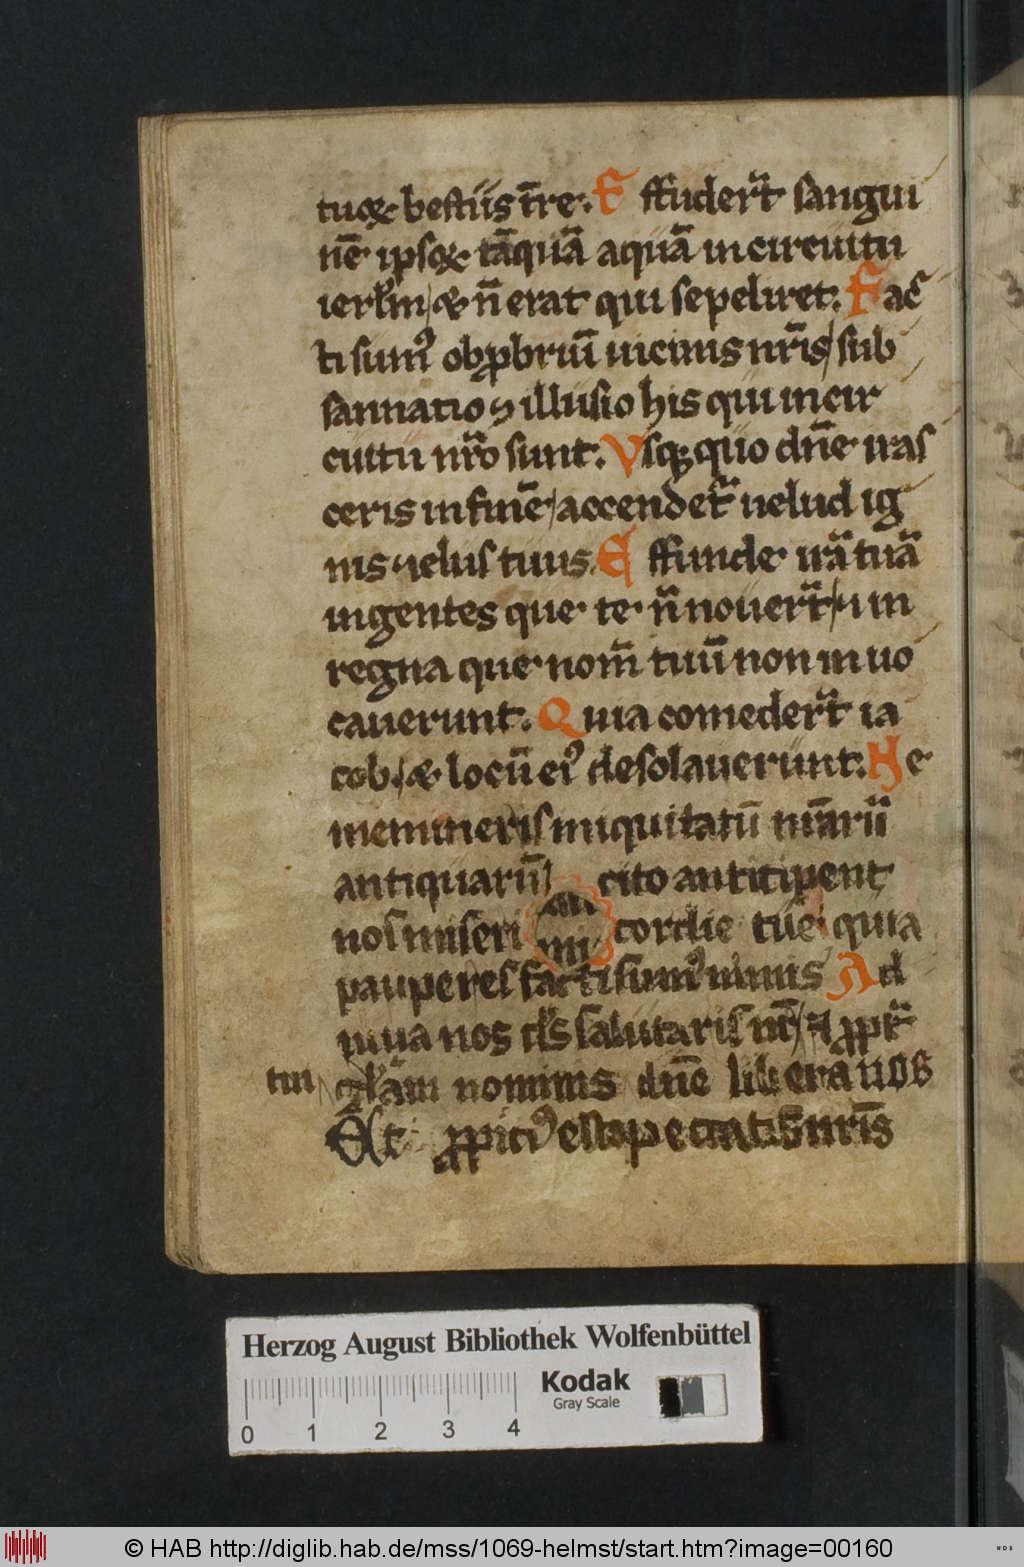 tuoꝝ bestiis t̄re. Effuder̄t sangui
nē ipsoꝝ tāquā aquā in circuitu
ierl̄m / & n̄ erat qui sepeliret. Fac
ti sumꝰ obꝓbriū uicinis nr̄is / sub
sannatio ⁊ illusio his qui in cir
cuitu nr̄o sunt. Vsqꝫ quo dn̄e iras
ceris in finē / accendet̄ uelud ig
nis zelus tuus. Effunde irā tuā
in gentes que te n̄ nouer̄t / ⁊ in
regna que nom̄ tuū non inuo
cauerunt. Quia comeder̄t ia
cob. / & locū eiꝰ desolauerunt. Ne
memineris iniquitatū nr̄arū
antiquarū / cito antitipent
nos miseri cordie tue / quia
pauperes facti sumꝰ nimis Ad
iuua nos ds̄ salutaris nr̄ / ⁊ ꝓpt̄
tui gl̄am nominis dn̄e libera nos
Et ꝓpiciꝰ esto peccatis nr̄is
Herzog August Bibliothek Wolfenbüttel
Kodak
Gray Scale
0 1 2 3 4
© HAB http://diglib.hab.de/mss/1069-helmst/start.htm?image=00160